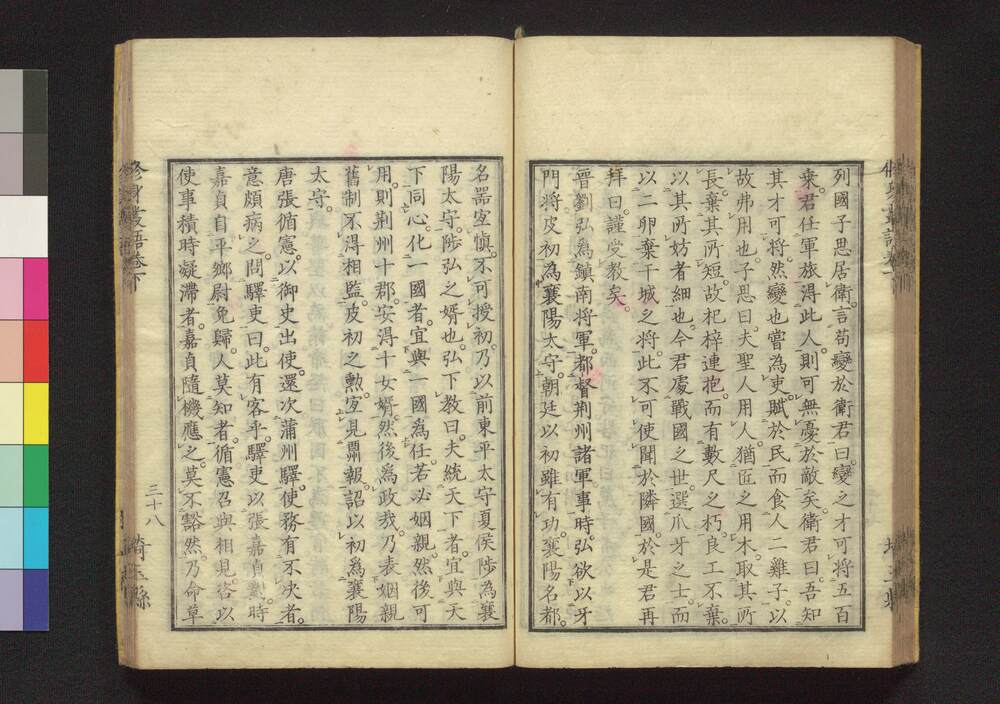 列國子思居衛。言苟變於衛君曰。變之才可將五百
乘。君任軍旅得此人。則可無憂於敵矣。衛君曰。吾知
其才可將。然變也嘗爲吏。賦於民而食人二雞子。以
故弗用也。子思曰。夫聖人用人。猶匠之用木。取其所
長。棄其所短。故杞梓連抱。而有數尺之朽。良工不棄。
以其所妨者細也。今君處戰國之世。選爪牙之士。而
以二卵棄干城之將。此不可使聞於隣國。於是君再
拜曰。謹受教矣。
晉劉弘爲鎮南將軍。都督荆州諸軍事。時弘欲以牙
門將皮初爲襄陽太守。朝廷以初雖有功。襄陽名都。
名器宜愼。不可授初。乃以前東平太守夏侯陟為襄
陽太守。陟弘之婿也。弘下教曰。夫統天下者。宜與天
下同心。化一國者。宜與一國為任。若必姻親。然後可
用。則荆州十郡。安得十女婿。然後爲政哉。乃表姻親
舊制不得相監。皮初之勲。宜見酬報。詔以初爲襄陽
太守。
唐張循憲。以御史出使。還次蒲州驛。使務有不决者。
意頗病之。問驛吏曰。此有客乎。驛吏以張嘉貞對。時
嘉貞自平鄉尉免歸。人莫知者。循憲召與相見。咨以
使事積時凝滯者。嘉貞隨機應之。莫不豁然。乃命草
修身叢語卷下
三十八
埼玉縣